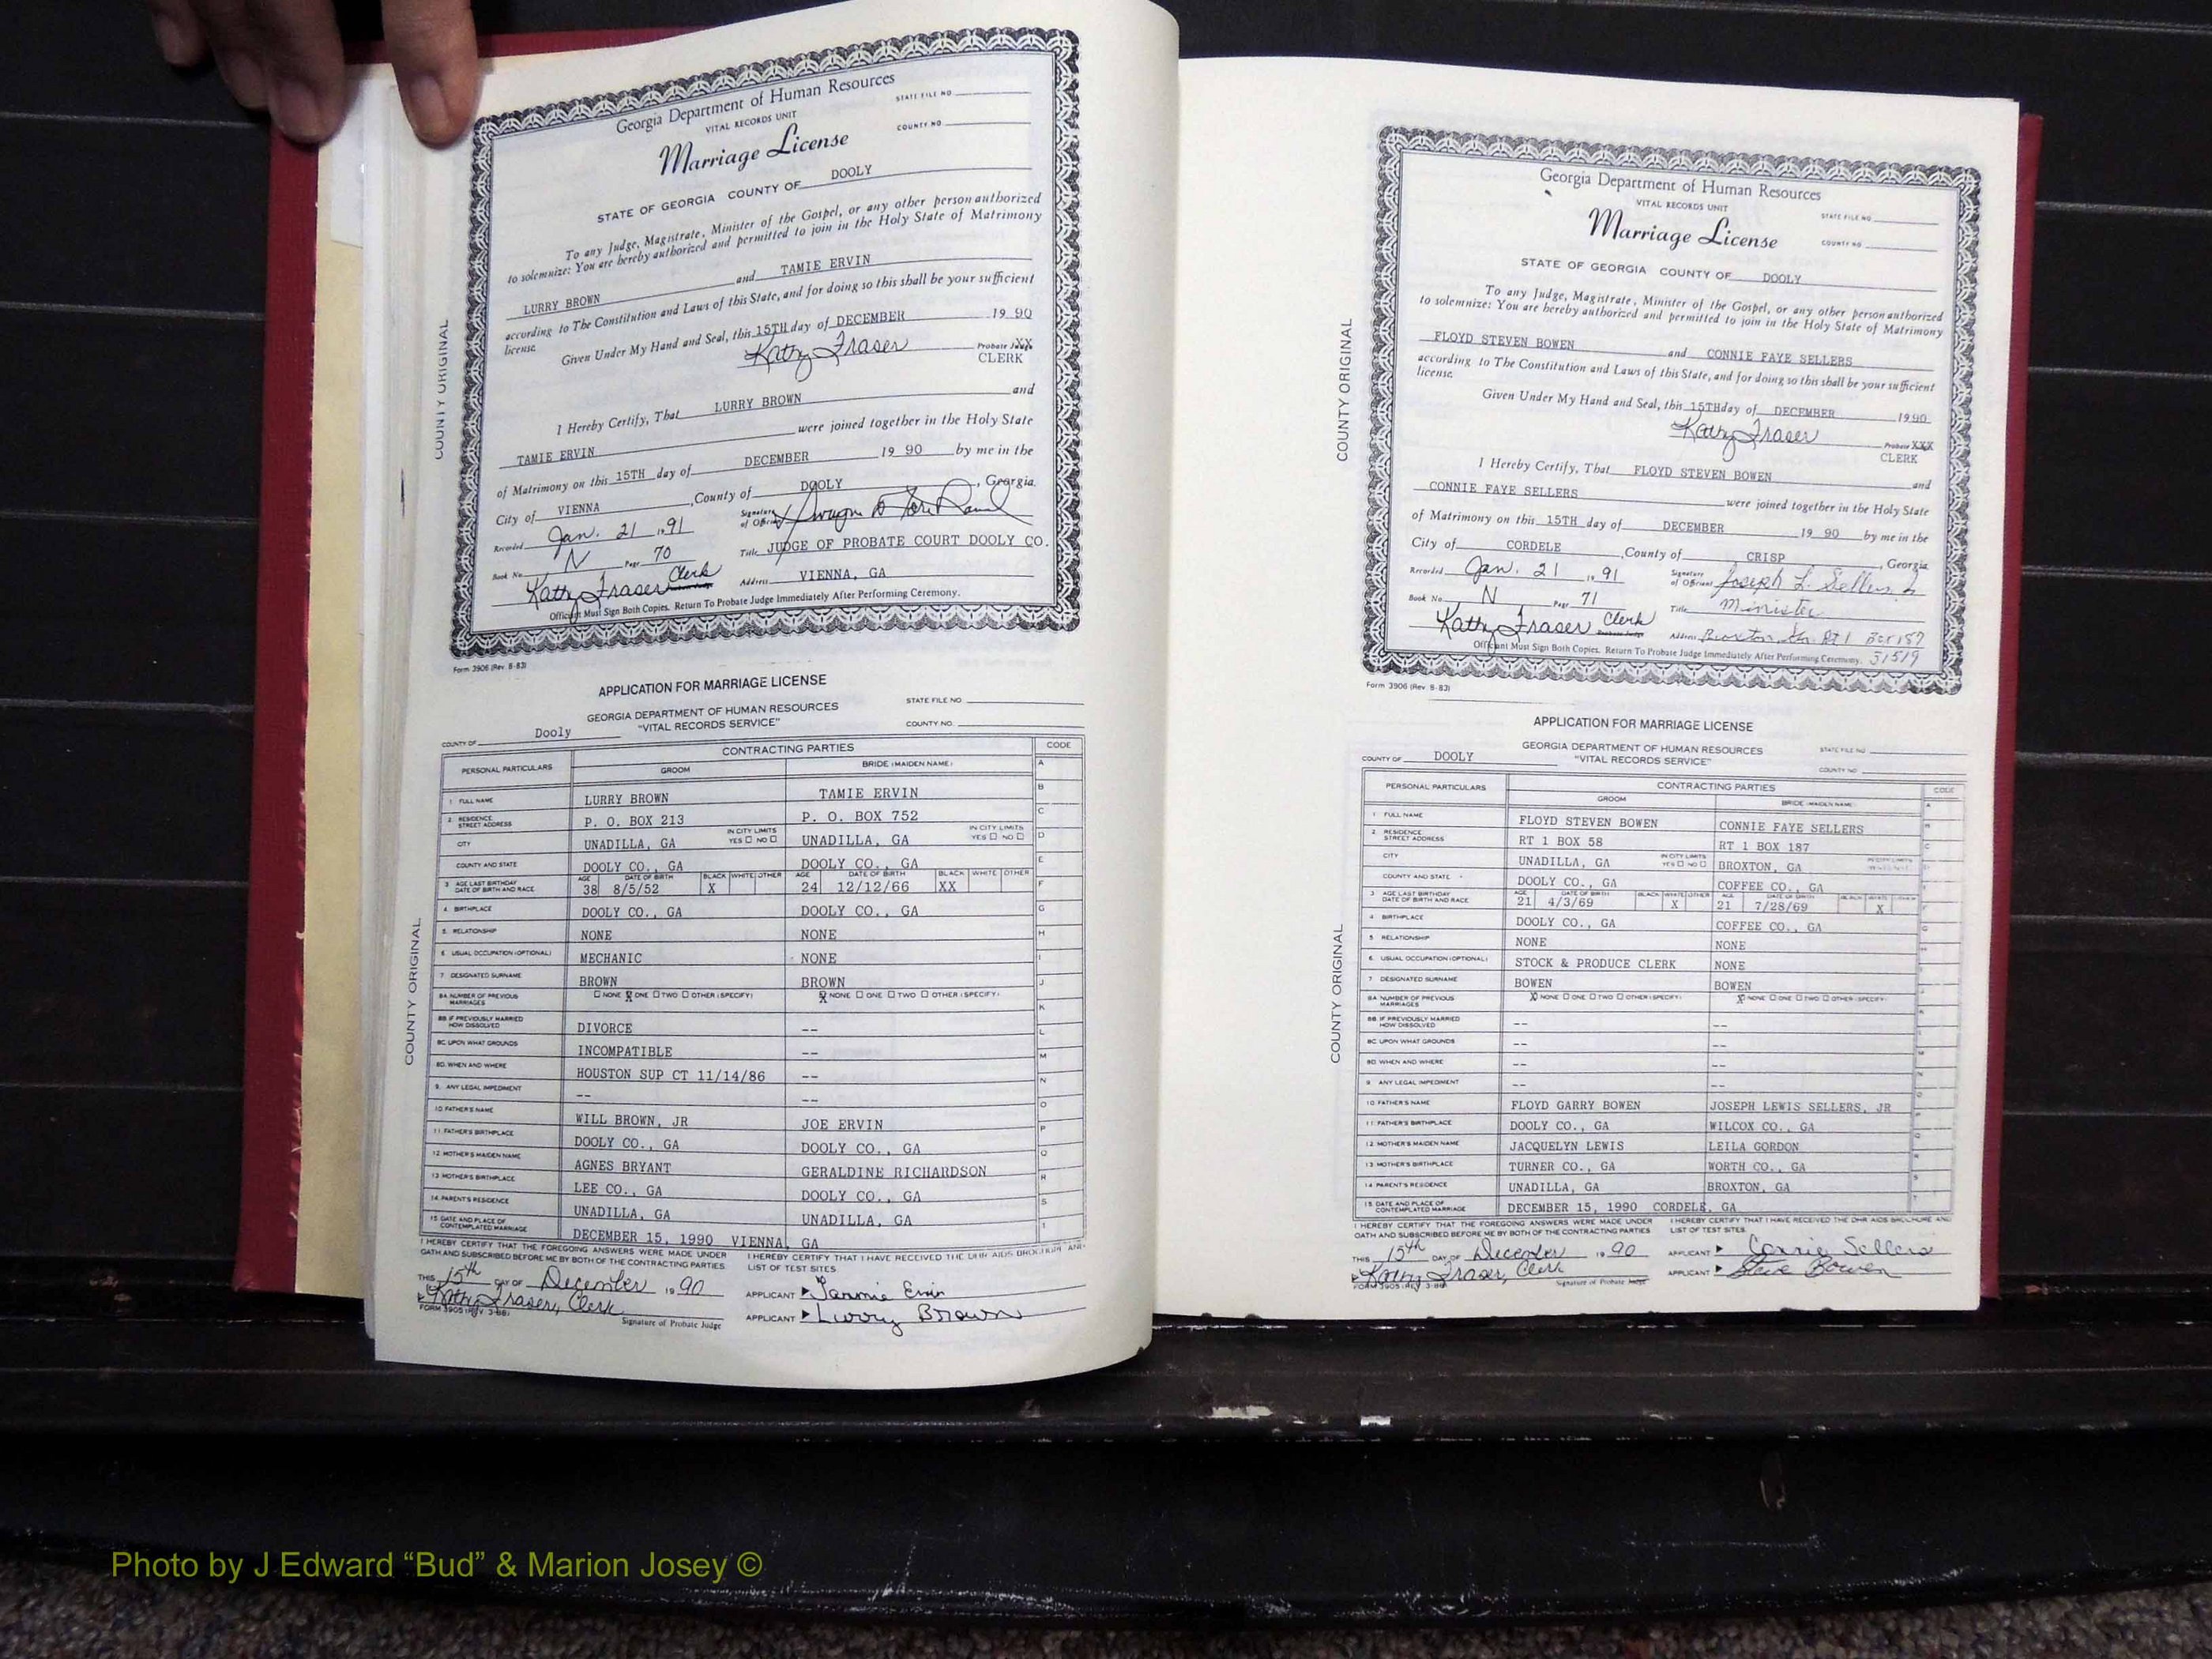 Georgia Department of Human Resources
VITAL RECORDS UNIT
STATE FILE NO
COUNTY NO
Marriage License
STATE OF GEORGIA COUNTY OF DOOLY
To any Judge, Magistrate, Minister of the Gospel, or any other person authorized
to solemnize: You are hereby authorized and permitted to join in the Holy State of Matrimony
LURRY BROWN and TAMIE ERVIN
according to The Constitution and Laws of this State, and for doing so this shall be your sufficient
license.
Given Under My Hand and Seal, this 15TH day of DECEMBER 19 90
Kathy Fraser Probate XX
CLERK
I Hereby Certify, That LURRY BROWN and
TAMIE ERVIN were joined together in the Holy State
of Matrimony on this 15TH day of DECEMBER 19 90 by me in the
City of VIENNA, County of DOOLY, Georgia.
Recorded Jan. 21 1991 Signature of Officiant
Book No. N Page 70 Title JUDGE OF PROBATE COURT DOOLY CO.
Kathy Fraser Clerk Address VIENNA, GA
Officiant Must Sign Both Copies. Return To Probate Judge Immediately After Performing Ceremony.
Form 3906 (Rev. 8-83)
COUNTY ORIGINAL
APPLICATION FOR MARRIAGE LICENSE
GEORGIA DEPARTMENT OF HUMAN RESOURCES
"VITAL RECORDS SERVICE"
STATE FILE NO
COUNTY NO.
COUNTY OF Dooly
PERSONAL PARTICULARS CONTRACTING PARTIES CODE
GROOM BRIDE (MAIDEN NAME)
1 FULL NAME LURRY BROWN TAMIE ERVIN
2. RESIDENCE STREET ADDRESS P. O. BOX 213 P. O. BOX 752
CITY UNADILLA, GA IN CITY LIMITS YES NO UNADILLA, GA IN CITY LIMITS YES NO
COUNTY AND STATE DOOLY CO., GA DOOLY CO., GA
3 AGE LAST BIRTHDAY DATE OF BIRTH AND RACE AGE 38 DATE OF BIRTH 8/5/52 BLACK X WHITE OTHER AGE 24 DATE OF BIRTH 12/12/66 BLACK XX WHITE OTHER
4. BIRTHPLACE DOOLY CO., GA DOOLY CO., GA
5. RELATIONSHIP NONE NONE
6 USUAL OCCUPATION (OPTIONAL) MECHANIC NONE
7 DESIGNATED SURNAME BROWN BROWN
8A NUMBER OF PREVIOUS MARRIAGES NONE X ONE TWO OTHER (SPECIFY) X NONE ONE TWO OTHER (SPECIFY)
8B. IF PREVIOUSLY MARRIED HOW DISSOLVED DIVORCE --
8C. UPON WHAT GROUNDS INCOMPATIBLE --
8D. WHEN AND WHERE HOUSTON SUP CT 11/14/86 --
9. ANY LEGAL IMPEDIMENT -- --
10 FATHER'S NAME WILL BROWN, JR JOE ERVIN
11. FATHER'S BIRTHPLACE DOOLY CO., GA DOOLY CO., GA
12. MOTHER'S MAIDEN NAME AGNES BRYANT GERALDINE RICHARDSON
13 MOTHER'S BIRTHPLACE LEE CO., GA DOOLY CO., GA
14. PARENT'S RESIDENCE UNADILLA, GA UNADILLA, GA
15 DATE AND PLACE OF CONTEMPLATED MARRIAGE DECEMBER 15, 1990 VIENNA, GA
A
B
C
D
E
F
G
H
I
J
K
L
M
N
O
P
Q
R
S
T
I HEREBY CERTIFY THAT THE FOREGOING ANSWERS WERE MADE UNDER
OATH AND SUBSCRIBED BEFORE ME BY BOTH OF THE CONTRACTING PARTIES
I HEREBY CERTIFY THAT I HAVE RECEIVED THE DHR AIDS BROCHURE AND
LIST OF TEST SITES.
THIS 15th DAY OF December 19 90
Kathy Fraser, Clerk
FORM 3905 (REV. 3-88)
Signature of Probate Judge
APPLICANT Tammie Ervin
APPLICANT Lurry Brown
COUNTY ORIGINAL
Georgia Department of Human Resources
VITAL RECORDS UNIT
STATE FILE NO
COUNTY NO
Marriage License
STATE OF GEORGIA COUNTY OF DOOLY
To any Judge, Magistrate, Minister of the Gospel, or any other person authorized
to solemnize: You are hereby authorized and permitted to join in the Holy State of Matrimony
FLOYD STEVEN BOWEN and CONNIE FAYE SELLERS
according to The Constitution and Laws of this State, and for doing so this shall be your sufficient
license.
Given Under My Hand and Seal, this 15TH day of DECEMBER 19 90
Kathy Fraser Probate XXX
CLERK
I Hereby Certify, That FLOYD STEVEN BOWEN and
CONNIE FAYE SELLERS were joined together in the Holy State
of Matrimony on this 15TH day of DECEMBER 19 90 by me in the
City of CORDELE, County of CRISP, Georgia
Recorded Jan. 21 1991 Signature of Officiant Joseph L. Sellers Jr
Book No. N Page 71 Title Minister
Kathy Fraser Clerk Probate Judge Address Broxton, Ga. Rt 1 Box 187
31519
Officiant Must Sign Both Copies. Return To Probate Judge Immediately After Performing Ceremony.
Form 3906 (Rev. 8-83)
COUNTY ORIGINAL
APPLICATION FOR MARRIAGE LICENSE
GEORGIA DEPARTMENT OF HUMAN RESOURCES
"VITAL RECORDS SERVICE"
STATE FILE NO
COUNTY NO
COUNTY OF DOOLY
PERSONAL PARTICULARS CONTRACTING PARTIES CODE
GROOM BRIDE (MAIDEN NAME)
1 FULL NAME FLOYD STEVEN BOWEN CONNIE FAYE SELLERS
2 RESIDENCE STREET ADDRESS RT 1 BOX 58 RT 1 BOX 187
CITY UNADILLA, GA IN CITY LIMITS YES NO BROXTON, GA IN CITY LIMITS
COUNTY AND STATE DOOLY CO., GA COFFEE CO., GA
3 AGE LAST BIRTHDAY DATE OF BIRTH AND RACE AGE 21 DATE OF BIRTH 4/3/69 BLACK WHITE X OTHER AGE 21 DATE OF BIRTH 7/28/69 BLACK WHITE X
4 BIRTHPLACE DOOLY CO., GA COFFEE CO., GA
5 RELATIONSHIP NONE NONE
6. USUAL OCCUPATION (OPTIONAL) STOCK & PRODUCE CLERK NONE
7 DESIGNATED SURNAME BOWEN BOWEN
8A NUMBER OF PREVIOUS MARRIAGES X NONE ONE TWO OTHER (SPECIFY) X NONE ONE TWO OTHER (SPECIFY)
8B. IF PREVIOUSLY MARRIED HOW DISSOLVED -- --
8C. UPON WHAT GROUNDS -- --
8D. WHEN AND WHERE -- --
9 ANY LEGAL IMPEDIMENT -- --
10 FATHER'S NAME FLOYD GARRY BOWEN JOSEPH LEWIS SELLERS, JR
11 FATHER'S BIRTHPLACE DOOLY CO., GA WILCOX CO., GA
12 MOTHER'S MAIDEN NAME JACQUELYN LEWIS LEILA GORDON
13 MOTHER'S BIRTHPLACE TURNER CO., GA WORTH CO., GA
14 PARENT'S RESIDENCE UNADILLA, GA BROXTON, GA
15. DATE AND PLACE OF CONTEMPLATED MARRIAGE DECEMBER 15, 1990 CORDELE, GA
I HEREBY CERTIFY THAT THE FOREGOING ANSWERS WERE MADE UNDER
OATH AND SUBSCRIBED BEFORE ME BY BOTH OF THE CONTRACTING PARTIES
I HEREBY CERTIFY THAT I HAVE RECEIVED THE DHR AIDS BROCHURE AND
LIST OF TEST SITES.
THIS 15th DAY OF December 19 90
Kathy Fraser, Clerk
FORM 3905 (REV. 3-88)
Signature of Probate Judge
APPLICANT Connie Sellers
APPLICANT Steve Bowen
COUNTY ORIGINAL
Photo by J Edward “Bud” & Marion Josey ©